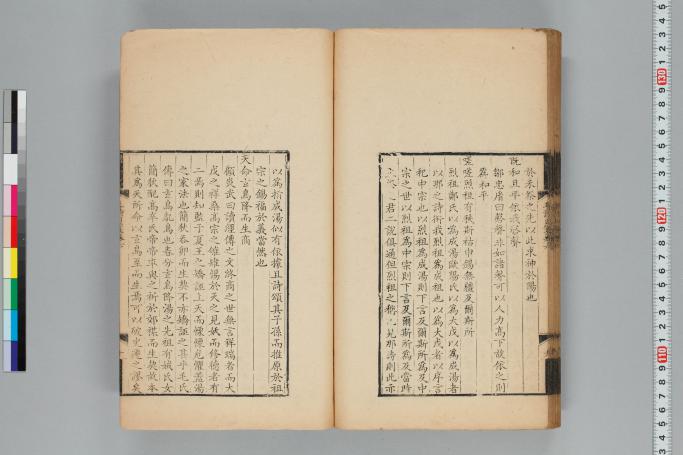 於未祭之先以此求神於陽也
既和且平依我磬聲
鄒忠㣧曰磬聲非如諸琴可以人力高下故依之則
喜和平
嗟嗟烈祖有秩斯祜申錫無疆及爾斯所
烈祖鄭氏以為成湯歐陽氏以為大戊以為成湯者
以那之詩衎我烈祖為成湯也以為大戊者以序言
祀中宗也以烈祖為成湯則下言及爾斯所為及中
宗之世以烈祖為中宗則下言及爾斯所為及當時
君二說俱通但烈祖之稱見那詩則此亦
以為指成湯似有依據且詩頌其子孫而推原於祖
宗之錫福於義當然也
天命玄鳥降而生商
顧炎武曰讀經傳之文終商之世無言祥瑞者而大
戊之祥桑高宗之雊雉惕於天之見妖而修德者有
二焉則知監于夏王之矯誣上天而慄慄危懼蓋湯
之家法也簡狄吞卵而生契不亦矯誣之甚乎毛氏
傳曰玄鳥鳦也春分玄鳥降湯之先祖有娀氏女
簡狄配高辛氏帝帝率與之祈於郊禖而生契故本
其為天所命以玄鳥至而生焉可以破史遷之謬矣